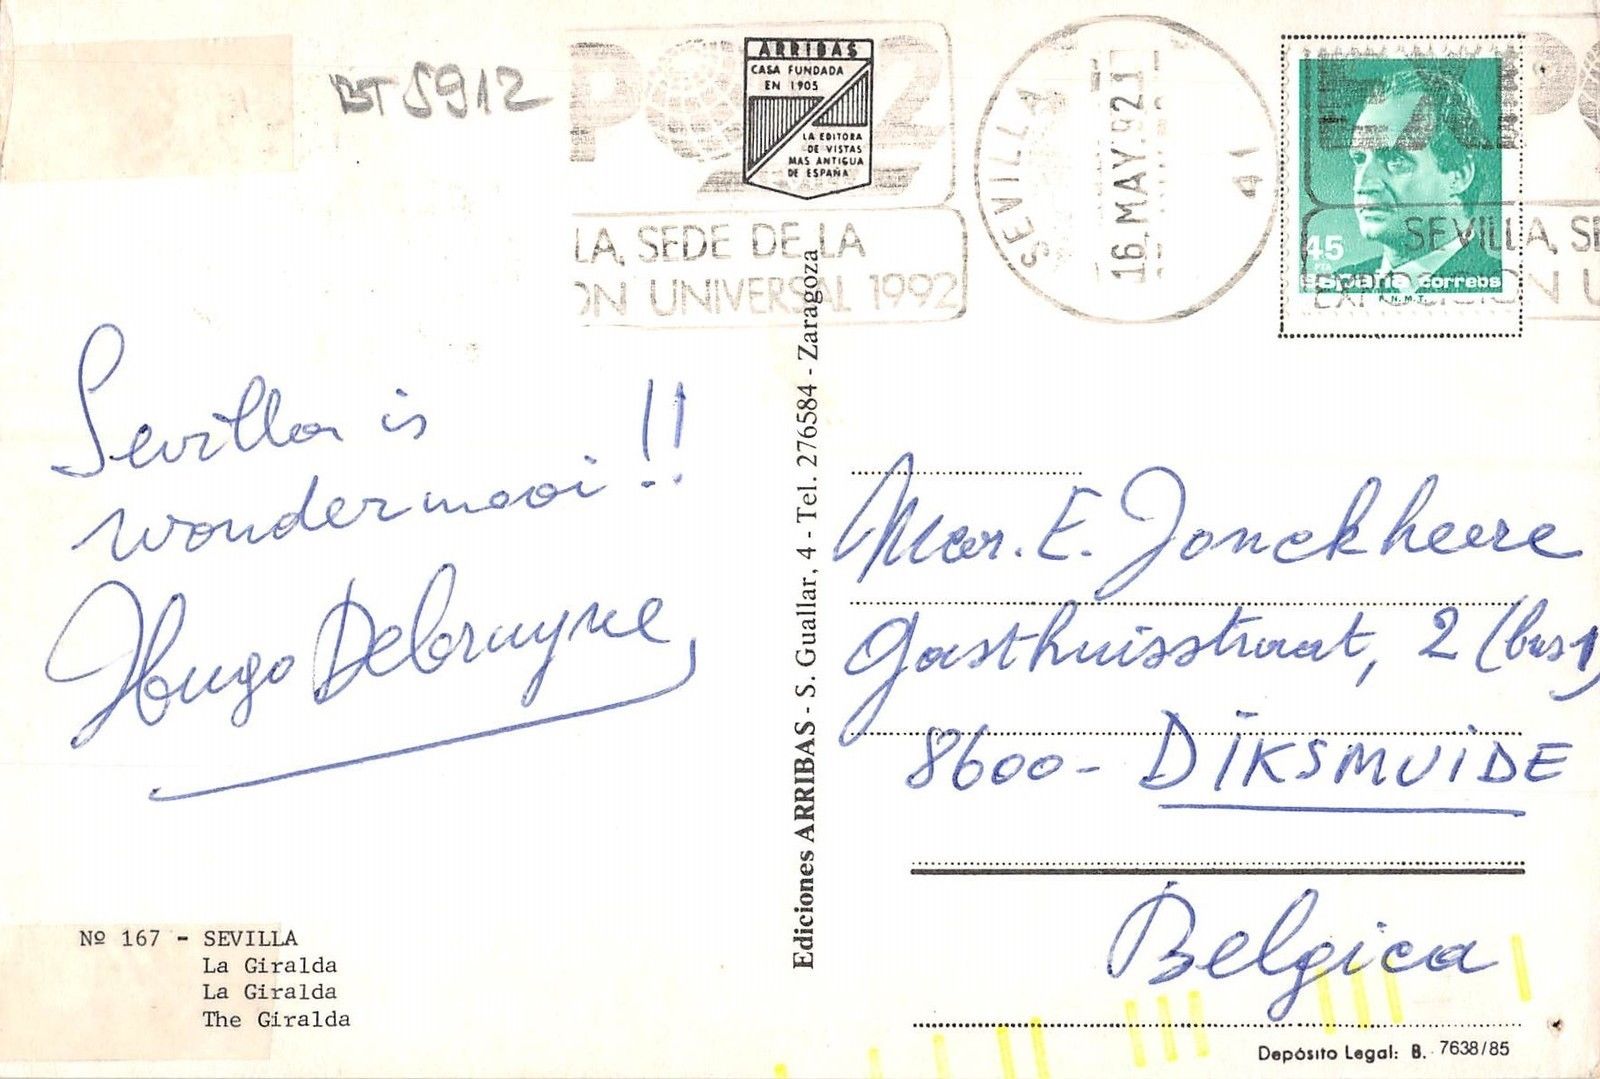 BT 5912
PO92
ARRIBAS
CASA FUNDADA
EN 1905
LA EDITORA
DE VISTAS
MAS ANTIGUA
DE ESPAÑA
LA, SEDE DE LA
ON UNIVERSAL 1992
SEVILLA
16 MAY. 92
41
EXPO
SEVILLA, SE
EXPOSICION U
45
PTA
España correos
F.N.M.T.
Sevilla is
wondermooi!!
Hugo Debruyne,
Nº 167 - SEVILLA
La Giralda
La Giralda
The Giralda
Ediciones ARRIBAS - S. Guallar, 4 - Tel. 276584 - Zaragoza
Mar. E. Jonckheere
Gasthuisstraat, 2 (bus 1)
8600 - DIKSMUIDE
Belgica
Depósito Legal: B. 7638/85